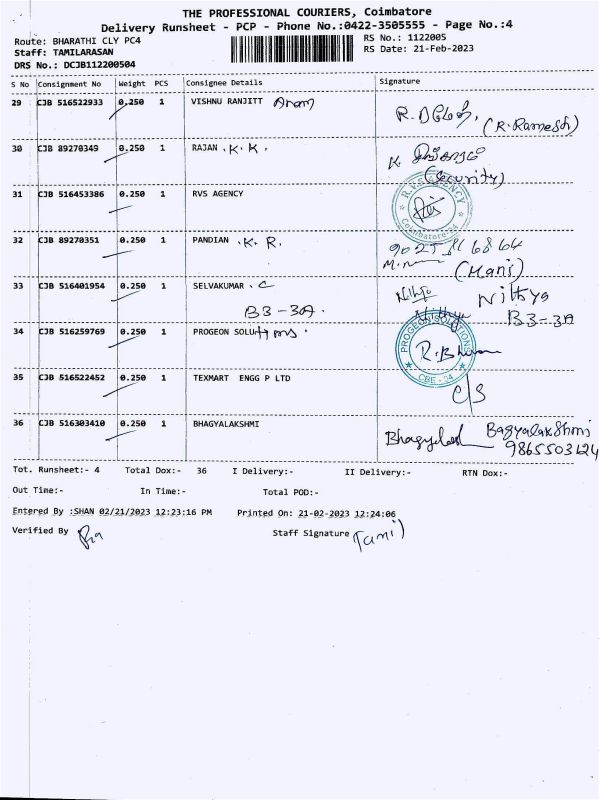 THE PROFESSIONAL COURIERS, Coimbatore
Delivery Runsheet - PCP - Phone No.:0422-3505555 - Page No.:4
Route: BHARATHI CLY PC4 RS No.: 1122005
Staff: TAMILARASAN RS Date: 21-Feb-2023
DRS No.: DCJB112200504
S No Consignment No Weight PCS Consignee Details Signature
29 CJB 516522933 0.250 1 VISHNU RANJITT
(R.Ramesh)
30 CJB 89270349 0.250 1 RAJAN .K.K.
(Security)
31 CJB 516453386 0.250 1 RVS AGENCY R.V.S AGENCY
Coimbatore
32 CJB 89270351 0.250 1 PANDIAN .K.R.
(Mani)
33 CJB 516401954 0.250 1 SELVAKUMAR . C Nithya
B3-3A. B3-3A
34 CJB 516259769 0.250 1 PROGEON SOLUtions PROGEON SOLUTIONS
CBE - 04
35 CJB 516522452 0.250 1 TEXMART ENGG P LTD
C/S
36 CJB 516303410 0.250 1 BHAGYALAKSHMI Bagyalakshmi
Tot. Runsheet:- 4 Total Dox:- 36 I Delivery:- II Delivery:- RTN Dox:-
Out Time:- In Time:- Total POD:-
Entered By :SHAN 02/21/2023 12:23:16 PM Printed On: 21-02-2023 12:24:06
Verified By Staff Signature